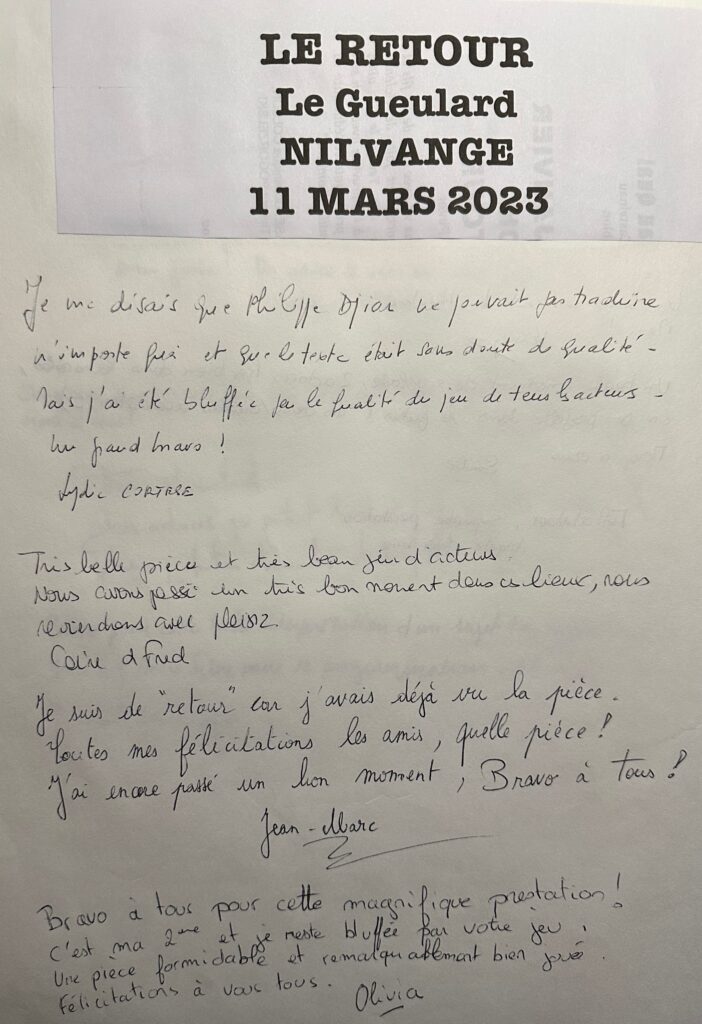 LE RETOUR
Le Gueulard
NILVANGE
11 MARS 2023
Je me disais que Philippe Djian ne pouvait pas traduire
n'importe quoi et que le texte était sans doute de qualité -
Mais j'ai été bluffée par la qualité du jeu de tous les acteurs -
Un grand bravo !
Lydie
Très belle pièce et très beau jeu d'acteurs.
Nous avons passé un très bon moment dans ces lieux, nous
reviendrons avec plaisir.
Fred
Je suis de "retour" car j'avais déjà vu la pièce.
Toutes mes félicitations les amis, quelle pièce !
J'ai encore passé un bon moment, Bravo à tous !
Jean-Marc
Bravo à tous pour cette magnifique prestation !
C'est ma 2ème et je reste bluffée par votre jeu.
Une pièce formidable et remarquablement bien jouée.
Félicitations à vous tous.
Olivia